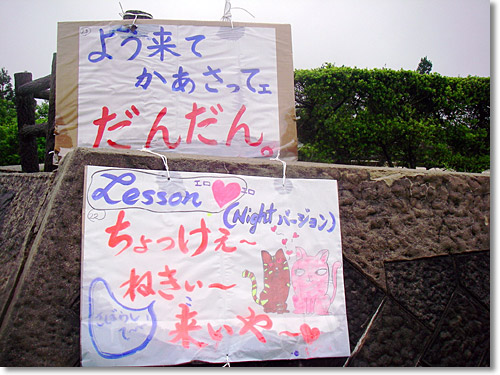 よう来て
かあさってェ
だんだん。
Lesson エロ♥エロ
(Nightバージョン)
ちょっけぇ〜
ねきぃ〜
来いや〜♥